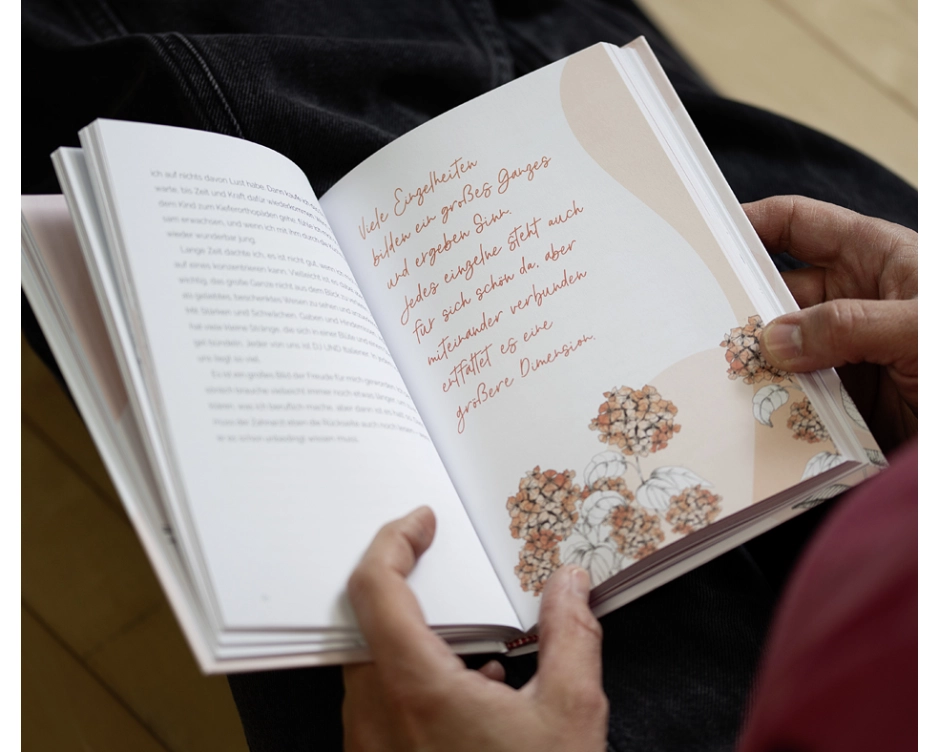 ich auf nichts davon Lust habe. Dann kaufe ich
warte, bis Zeit und Kraft dafür wiederkommen.
dem Kind zum Kieferorthopäden gehe, fühle ich mich
sam erwachsen, und wenn ich mit ihm durch die
wieder wunderbar jung.
Lange Zeit dachte ich, es ist nicht gut, wenn ich
auf eines konzentrieren kann. Vielleicht ist es
wichtig, das große Ganze nicht aus dem Blick zu
als geliebtes, beschenktes Wesen zu sehen und
Mit Stärken und Schwächen, Gaben und
hat viele kleine Stränge, die sich in einer Blüte und
gel bündeln. Jeder von uns ist EU UND Italiener.
uns liegt so viel.
Es ist ein großes Bild der Freude für mich geworden
wirklich brauche vielleicht immer noch etwas länger, um
klären, was ich beruflich mache, aber dann ist es
muss der Zahnarzt eben die Rückseite auch noch
er es schon unbedingt wissen muss.
Viele Einzelheiten
bilden ein großes Ganzes
und ergeben Sinn.
Jedes einzelne steht auch
für sich schön da, aber
miteinander verbunden
entfaltet es eine
größere Dimension.